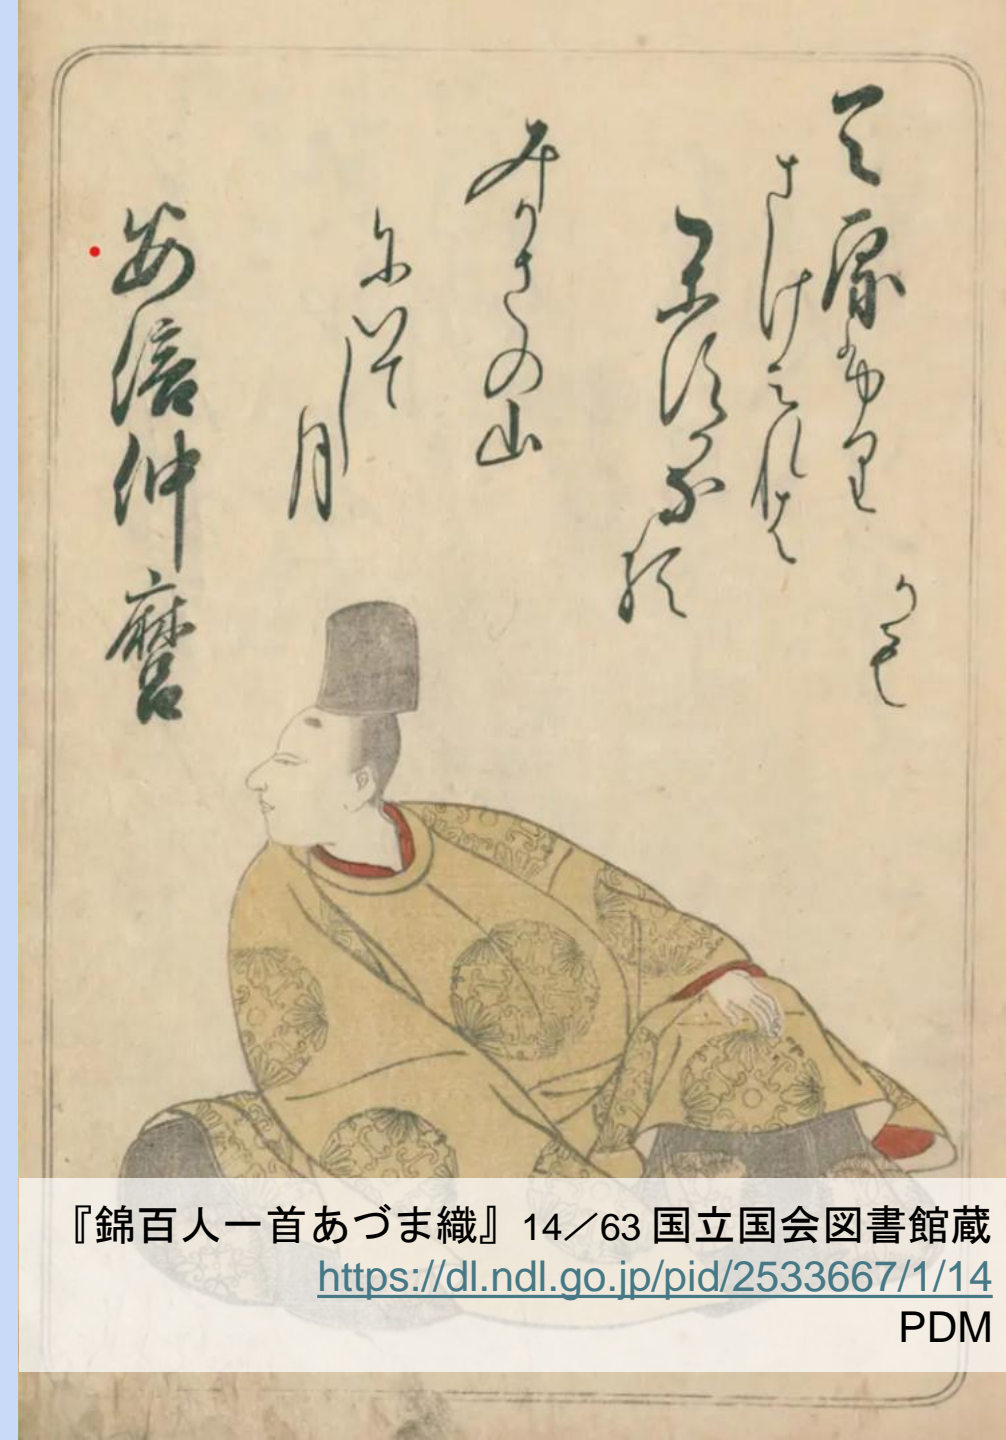 天原ふり
さけみれは
かすかなる
みかさの山
にいてし
月
かも
安倍仲麿
『錦百人一首あづま織』14／63 国立国会図書館蔵
https://dl.ndl.go.jp/pid/2533667/1/14
PDM